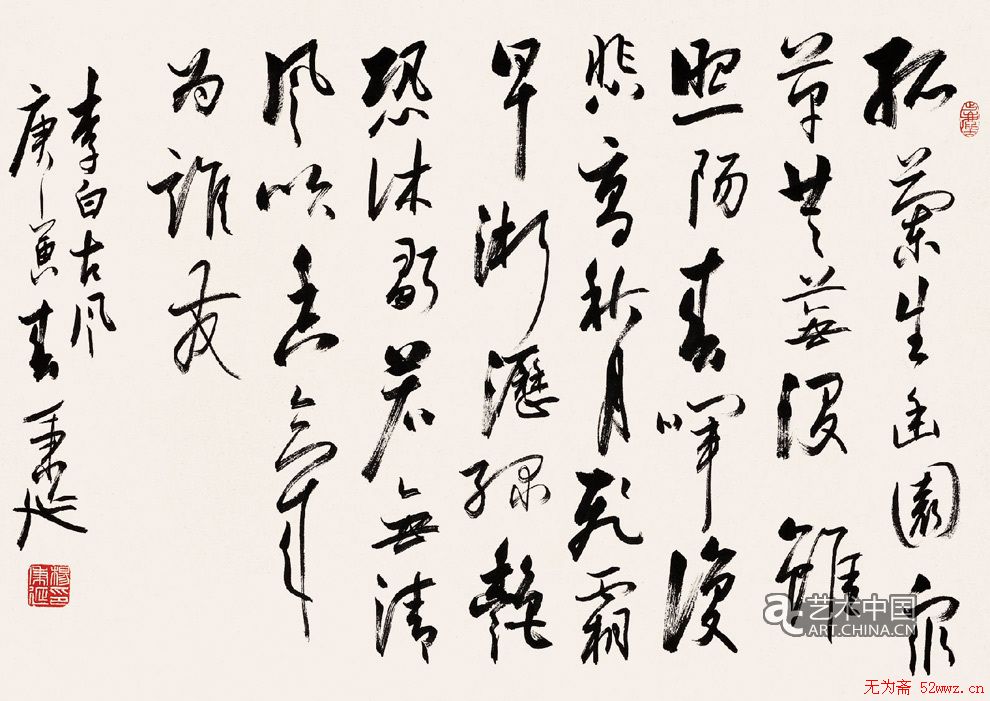 孤蘭生幽園眾
草共蕪沒雖
照陽春暉復
悲高秋月飛霜
早淅瀝綠艷
恐休歇若無清
風吹香氣
為誰發
李白古風
庚寅春
艺术中国
ART.CHINA.CN
无为斋 52wwz.cn